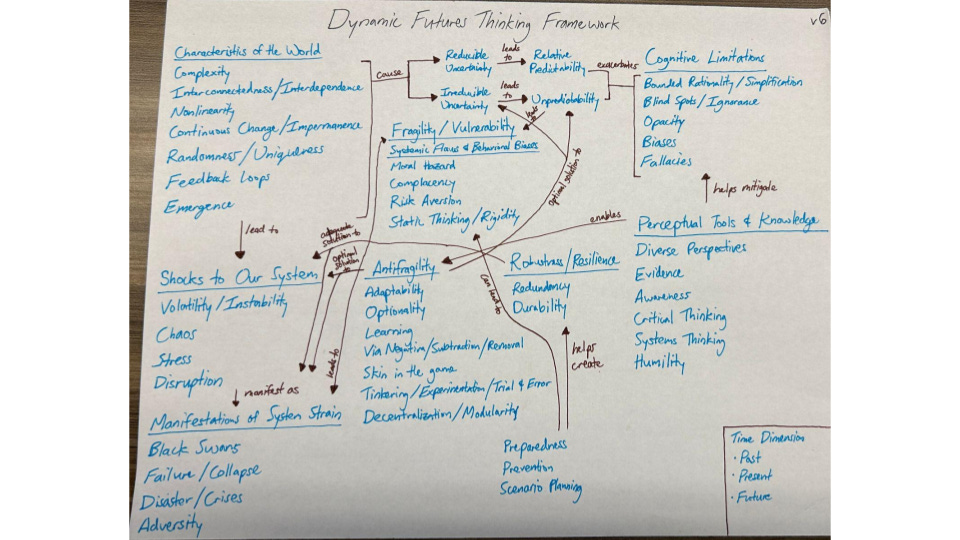 Dynamic Futures Thinking Framework
v6
Characteristics of the World
Complexity
Interconnectedness/Interdependence
Nonlinearity
Continuous Change/Impermanence
Randomness/Uniqueness
Feedback Loops
Emergence
cause
Reducible
Uncertainty
leads
to
Relative
Predictability
Irreducible
Uncertainty
leads
to
Unpredictability
exacerbates
Cognitive Limitations
Bounded Rationality/Simplification
Blind Spots/Ignorance
Opacity
Biases
Fallacies
leads
to
Fragility/Vulnerability
Systemic Flaws & Behavioral Biases
Moral Hazard
Complacency
Risk Aversion
Static Thinking/Rigidity
optimal solution to
helps mitigate
enables
Perceptual Tools & Knowledge
Diverse Perspectives
Evidence
Awareness
Critical Thinking
Systems Thinking
Humility
lead to
adequate
solution to
optimal
solution
to
Shocks to Our System
Volatility/Instability
Chaos
Stress
Disruption
manifest as
leads to
Antifragility
Adaptability
Optionality
Learning
Via Negitiva/Subtraction/Removal
Skin in the game
Tinkering/Experimentation/Trial & Error
Decentralization/Modularity
can lead to
Robustness/Resilience
Redundancy
Durability
helps
create
Manifestations of System Strain
Black Swans
Failure/Collapse
Disaster/Crises
Adversity
Preparedness
Prevention
Scenario Planning
Time Dimension
· Past
· Present
· Future